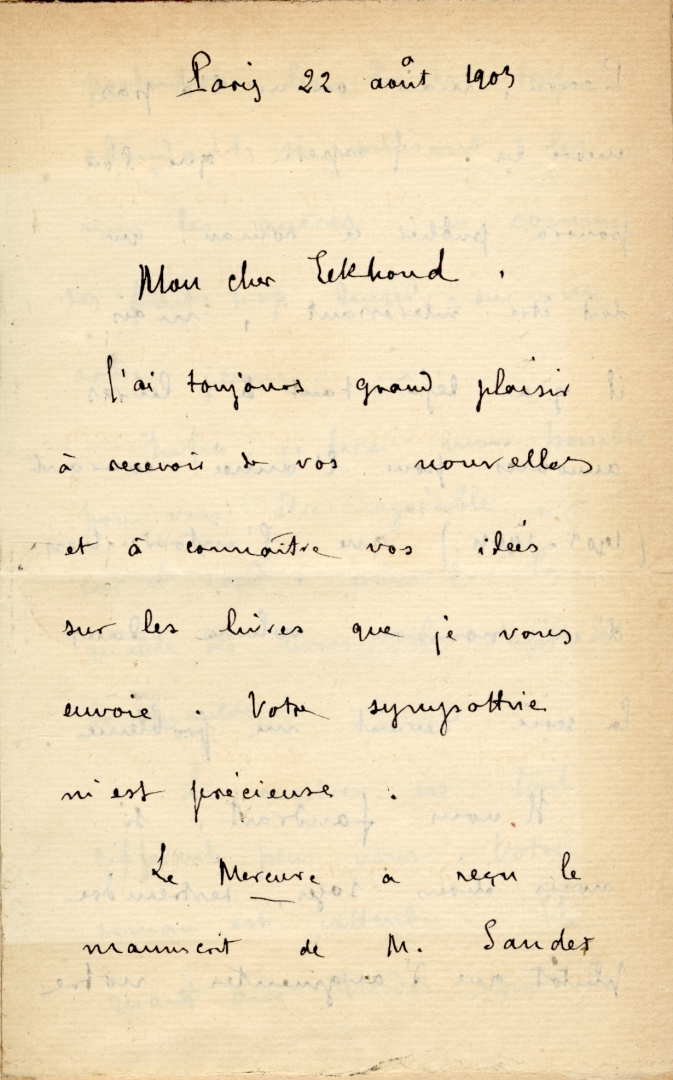 Paris 22 août 1903
Mon cher Eekhoud.
J'ai toujours grand plaisir
à recevoir de vos nouvelles
et à connaître vos idées
sur les livres que je vous
envoie. Votre sympathie
m'est précieuse.
Le Mercure a reçu le
manuscrit de M.